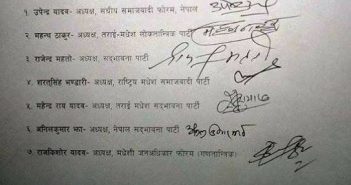 १. उपेन्द्र यादव- अध्यक्ष, संघीय समाजवादी फोरम, नेपाल
२. महन्थ ठाकुर- अध्यक्ष, तराई-मधेश लोकतान्त्रिक पार्टी
३. राजेन्द्र महतो- अध्यक्ष, सद्भावना पार्टी
४. शरतसिंह भण्डारी- अध्यक्ष, राष्ट्रिय मधेश समाजवादी पार्टी
५. महेन्द्र राय यादव- अध्यक्ष, तराई मधेश सद्भावना पार्टी
६. अनिलकुमार झा- अध्यक्ष, नेपाल सद्भावना पार्टी
७. राजकिशोर यादव- अध्यक्ष, मधेशी जनअधिकार फोरम (गणतान्त्रिक)